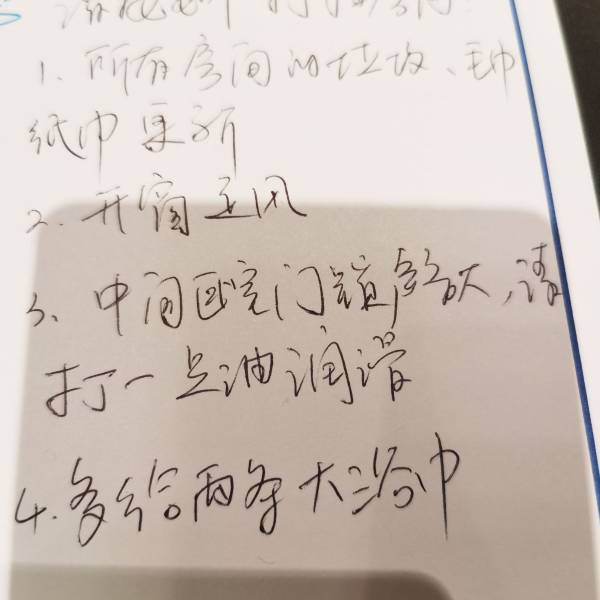 1. 所有房间的垃圾、毛巾
纸巾更新
2. 开窗通风
3. 中间医院门锁声, 请
打一点油润滑
4. 多给两条大浴巾